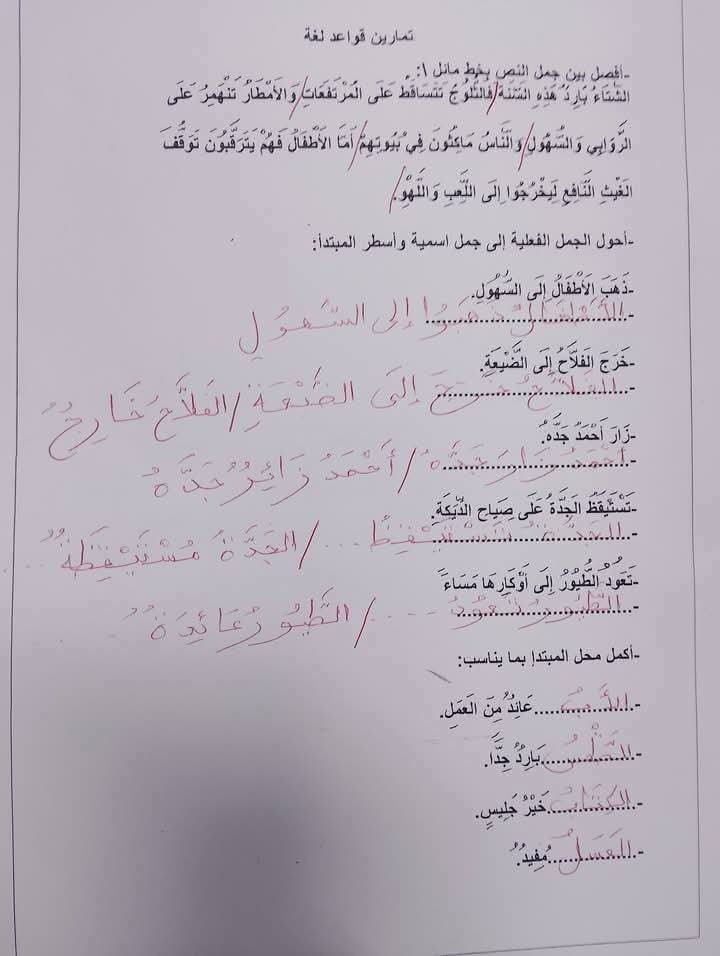 تمارين قواعد لغة
-أفصل بين جمل النص بخط مائل \:
الشِّتَاءُ بَارِدٌ هَذِهِ السَّنَةَ/ فَالثُّلُوجُ تَتَسَاقَطُ عَلَى المُرْتَفَعَاتِ/ وَالأَمْطَارُ تَنْهَمِرُ عَلَى
الرَّوَابِي وَالسُّهُولِ/ وَالنَّاسُ مَاكِثُونَ فِي بُيُوتِهِمْ/ أَمَّا الأَطْفَالُ فَهُمْ يَتَرَقَّبُونَ تَوَقُّفَ
الغَيْثِ النَّافِعِ لِيَخْرُجُوا إِلَى اللَّعِبِ وَاللَّهْوِ./
-أحول الجمل الفعلية إلى جمل اسمية وأسطر المبتدأ:
-ذَهَبَ الأَطْفَالُ إِلَى السُّهُولِ.
-الأَطْفَالُ ذَهَبُوا إلى السُّهُولِ
-خَرَجَ الفَلاَّحُ إِلَى الضَّيْعَةِ.
-الفَلاَّحُ خَرَجَ إلَى الضَّيْعَةِ / الفَلاَّحُ خَارِجٌ
-زَارَ أَحْمَدُ جَدَّهُ.
-أَحْمَدُ زَارَ جَدَّهُ / أَحْمَدُ زَائِرٌ جَدَّهُ
-تَسْتَيْقِظُ الجَدَّةُ عَلَى صِيَاحِ الدِّيَكَةِ.
-الجَدَّةُ تَسْتَيْقِظُ ... / الجَدَّةُ مُسْتَيْقِظَةٌ ...
-تَعُودُ الطُّيُورُ إِلَى أَوْكَارِهَا مَسَاءً
-الطُّيُورُ تَعُودُ .... / الطُّيُورُ عَائِدَةٌ
-أكمل محل المبتدإ بما يناسب:
-الأَبُ عَائِدٌ مِنَ العَمَلِ.
-الطَّقْسُ بَارِدٌ جِدًّا.
-الكِتَابُ خَيْرُ جَلِيسٍ.
-العَسَلُ مُفِيدٌ.